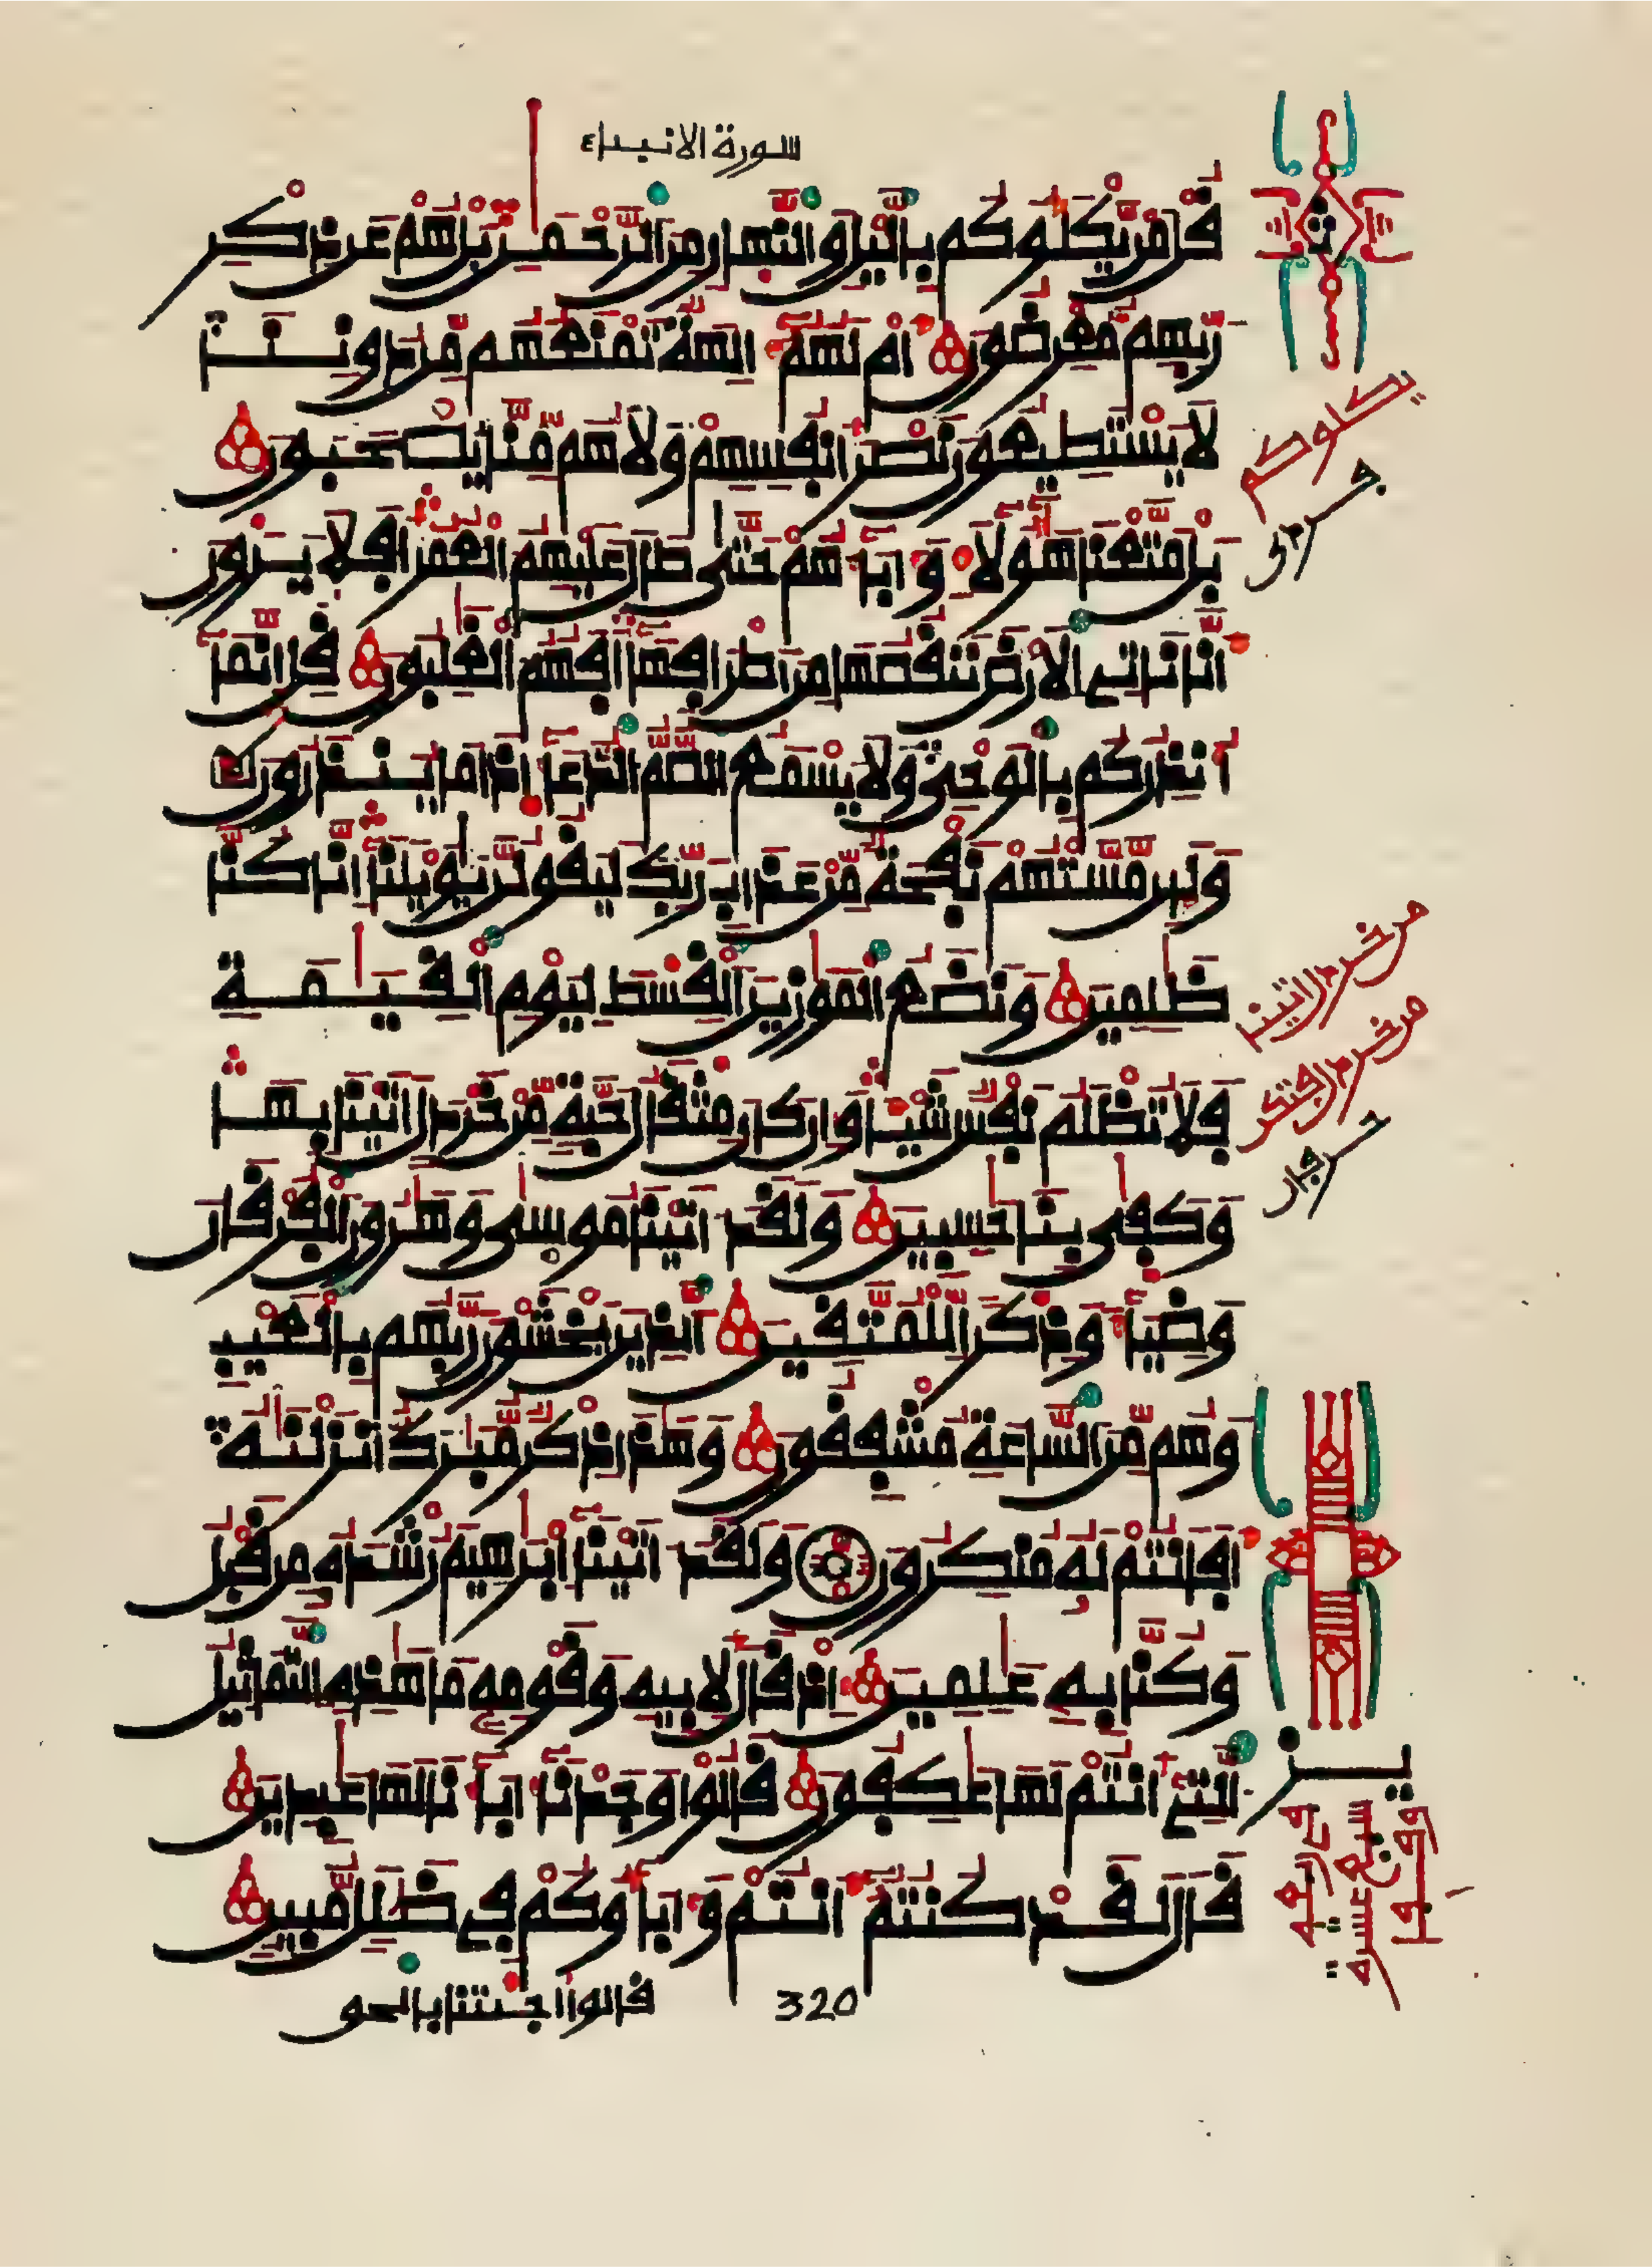 سورة الانبياء
قل من يكلؤكم باليل والنهار من الرحمن بل هم عن ذكر
ربهم معرضون ام لهم ءالهة تمنعهم من دوننا
لا يستطيعون نصر انفسهم ولا هم منا يصحبون
بل متعنا هؤلاء وءاباءهم حتى طال عليهم العمر افلا يرون
انا ناتي الارض ننقصها من اطرافها افهم الغلبون قل انما
انذركم بالوحي ولا يسمع الصم الدعاء اذا ما ينذرون
ولئن مستهم نفحة من عذاب ربك ليقولن يويلنا انا كنا
ظلمين ونضع الموزين القسط ليوم القيمة
فلا تظلم نفس شيئا وان كان مثقال حبة من خردل اتينا بها
وكفى بنا حسبين ولقد ءاتينا موسى وهرون الفرقان
وضياء وذكرا للمتقين الذين يخشون ربهم بالغيب
وهم من الساعة مشفقون وهذا ذكر مبرك انزلنه
افانتم له منكرون ولقد ءاتينا ابرهيم رشده من قبل
وكنا به علمين اذ قال لابيه وقومه ما هذه التماثيل
التي انتم لها عكفون قالوا وجدنا ءاباءنا لها عبدين
قال لقد كنتم انتم وءاباؤكم في ضلل مبين
320
قالوا اجئتنا بالحق
يكلوكم
من خردل اتينا